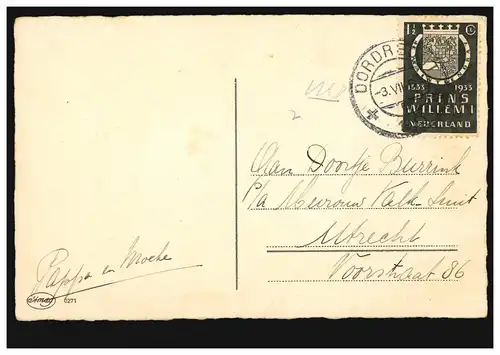 1½ ct
1533 1933
PRINS
WILLEM I
NEDERLAND
DORDRE
-3.VII
Aan Doortje Burrink
p/a Mevrouw Kalk Smit
Utrecht
Voorstraat 86
Pappa en Moeke
Amag
0271
2